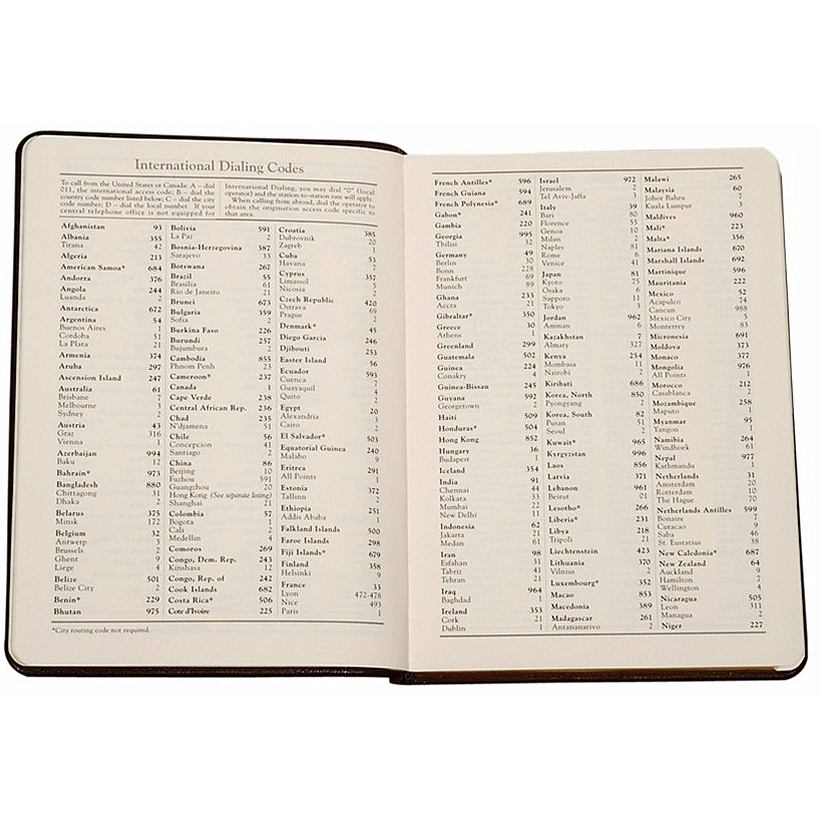 International Dialing Codes
To call from the United States or Canada: A – dial
011, the international access code; B – dial the
country code number listed below; C – dial the city
code number; D – dial the local number. If your
central telephone office is not equipped for
International Dialing, you may dial "0" (local
operator) and the station-to-station rate will apply.
When calling from abroad, dial the operator to
obtain the origination access code specific to
that area.
Afghanistan 93
Albania 355
Tirana 42
Algeria 213
American Samoa* 684
Andorra 376
Angola 244
Luanda 2
Antarctica 672
Argentina 54
Buenos Aires 1
Cordoba 51
La Plata 21
Armenia 374
Aruba 297
Ascension Island 247
Australia 61
Brisbane 7
Melbourne 3
Sydney 2
Austria 43
Graz 316
Vienna 1
Azerbaijan 994
Baku 12
Bahrain* 973
Bangladesh 880
Chittagong 31
Dhaka 2
Belarus 375
Minsk 172
Belgium 32
Antwerp 3
Brussels 2
Ghent 9
Liege 4
Belize 501
Belize City 2
Benin* 229
Bhutan 975
Bolivia 591
La Paz 2
Bosnia-Herzegovina 387
Sarajevo 33
Botswana 267
Brazil 55
Brasilia 61
Rio de Janeiro 21
Brunei 673
Bulgaria 359
Sofia 2
Burkina Faso 226
Burundi 257
Bujumbura 2
Cambodia 855
Phnom Penh 23
Cameroon* 237
Canada 1
Cape Verde 238
Central African Rep. 236
Chad 235
N'djamena 51
Chile 56
Concepcion 41
Santiago 2
China 86
Beijing 10
Fuzhou 591
Guangzhou 20
Hong Kong (See separate listing)
Shanghai 21
Colombia 57
Bogota 1
Cali 2
Medellin 4
Comoros 269
Congo, Dem. Rep. 243
Kinshasa 12
Congo, Rep. of 242
Cook Islands 682
Costa Rica* 506
Cote d'Ivoire 225
Croatia 385
Dubrovnik 20
Zagreb 1
Cuba 53
Havana 7
Cyprus 357
Limassol 5
Nicosia 2
Czech Republic 420
Ostrava 69
Prague 2
Denmark* 45
Diego Garcia 246
Djibouti 253
Easter Island 56
Ecuador 593
Cuenca 7
Guayaquil 4
Quito 2
Egypt 20
Alexandria 3
Cairo 2
El Salvador* 503
Equatorial Guinea 240
Malabo 9
Eritrea 291
All Points 1
Estonia 372
Tallinn 2
Ethiopia 251
Addis Ababa 1
Falkland Islands 500
Faroe Islands 298
Fiji Islands* 679
Finland 358
Helsinki 9
France 33
Lyon 472-478
Nice 493
Paris 1
*City routing code not required.
French Antilles* 596
French Guiana 594
French Polynesia* 689
Gabon* 241
Gambia 220
Georgia 995
Tbilisi 32
Germany 49
Berlin 30
Bonn 228
Frankfurt 69
Munich 89
Ghana 233
Accra 21
Gibraltar* 350
Greece 30
Athens 1
Greenland 299
Guatemala 502
Guinea 224
Conakry 4
Guinea-Bissau 245
Guyana 592
Georgetown 2
Haiti 509
Honduras* 504
Hong Kong 852
Hungary 36
Budapest 1
Iceland 354
India 91
Chennai 44
Kolkata 33
Mumbai 22
New Delhi 11
Indonesia 62
Jakarta 21
Medan 61
Iran 98
Esfahan 31
Tabriz 41
Tehran 21
Iraq 964
Baghdad 1
Ireland 353
Cork 21
Dublin 1
Israel 972
Jerusalem 2
Tel Aviv-Jaffa 3
Italy 39
Bari 80
Florence 55
Genoa 10
Milan 2
Naples 81
Rome 6
Venice 41
Japan 81
Kyoto 75
Osaka 6
Sapporo 11
Tokyo 3
Jordan 962
Amman 6
Kazakhstan 7
Almaty 327
Kenya 254
Mombasa 11
Nairobi 2
Kiribati 686
Korea, North 850
Pyongyang 2
Korea, South 82
Pusan 51
Seoul 2
Kuwait* 965
Kyrgyzstan 996
Laos 856
Latvia 371
Lebanon 961
Beirut 01
Lesotho* 266
Liberia* 231
Libya 218
Tripoli 21
Liechtenstein 423
Lithuania 370
Vilnius 2
Luxembourg* 352
Macao 853
Macedonia 389
Madagascar 261
Antananarivo 2
Malawi 265
Malaysia 60
Johor Bahru 7
Kuala Lumpur 3
Maldives 960
Mali* 223
Malta* 356
Mariana Islands 670
Marshall Islands 692
Martinique 596
Mauritania 222
Mexico 52
Acapulco 74
Cancun 988
Mexico City 5
Monterrey 83
Micronesia 691
Moldova 373
Monaco 377
Mongolia 976
All Points 1
Morocco 212
Casablanca 2
Mozambique 258
Maputo 1
Myanmar 95
Yangon 1
Namibia 264
Windhoek 61
Nepal 977
Kathmandu 1
Netherlands 31
Amsterdam 20
Rotterdam 10
The Hague 70
Netherlands Antilles 599
Bonaire 7
Curacao 9
Saba 46
St. Eustatius 38
New Caledonia* 687
New Zealand 64
Auckland 9
Hamilton 7
Wellington 4
Nicaragua 505
Leon 311
Managua 2
Niger 227